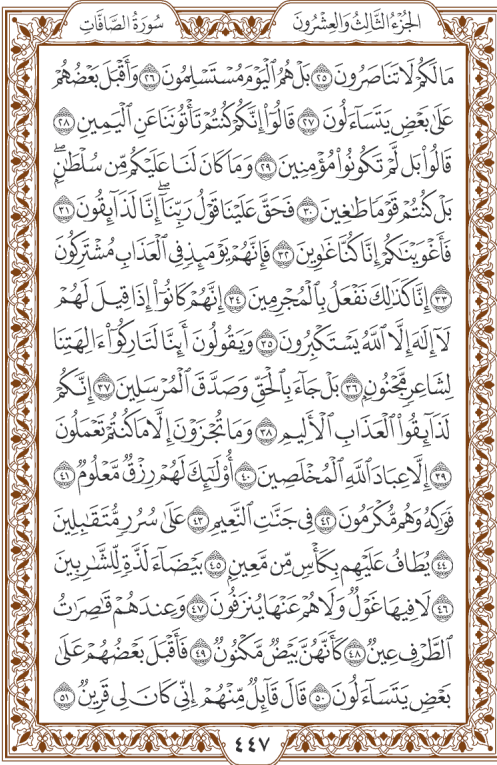 الجُزْءُ الثَّالِثُ وَالعِشْرُونَ سُورَةُ الصَّافَّاتِ
مَا لَكُمْ لَا تَنَاصَرُونَ ٢٥ بَلْ هُمُ ٱلْيَوْمَ مُسْتَسْلِمُونَ ٢٦ وَأَقْبَلَ بَعْضُهُمْ
عَلَىٰ بَعْضٍ يَتَسَآءَلُونَ ٢٧ قَالُوٓا۟ إِنَّكُمْ كُنتُمْ تَأْتُونَنَا عَنِ ٱلْيَمِينِ ٢٨
قَالُوا۟ بَل لَّمْ تَكُونُوا۟ مُؤْمِنِينَ ٢٩ وَمَا كَانَ لَنَا عَلَيْكُم مِّن سُلْطَٰنٍۭ ۖ
بَلْ كُنتُمْ قَوْمًا طَٰغِينَ ٣٠ فَحَقَّ عَلَيْنَا قَوْلُ رَبِّنَآ ۖ إِنَّا لَذَآئِقُونَ ٣١
فَأَغْوَيْنَٰكُمْ إِنَّا كُنَّا غَٰوِينَ ٣٢ فَإِنَّهُمْ يَوْمَئِذٍ فِى ٱلْعَذَابِ مُشْتَرِكُونَ
٣٣ إِنَّا كَذَٰلِكَ نَفْعَلُ بِٱلْمُجْرِمِينَ ٣٤ إِنَّهُمْ كَانُوٓا۟ إِذَا قِيلَ لَهُمْ
لَآ إِلَٰهَ إِلَّا ٱللَّهُ يَسْتَكْبِرُونَ ٣٥ وَيَقُولُونَ أَئِنَّا لَتَارِكُوٓا۟ ءَالِهَتِنَا
لِشَاعِرٍ مَّجْنُونٍۭ ٣٦ بَلْ جَآءَ بِٱلْحَقِّ وَصَدَّقَ ٱلْمُرْسَلِينَ ٣٧ إِنَّكُمْ
لَذَآئِقُوا۟ ٱلْعَذَابِ ٱلْأَلِيمِ ٣٨ وَمَا تُجْزَوْنَ إِلَّا مَا كُنتُمْ تَعْمَلُونَ
٣٩ إِلَّا عِبَادَ ٱللَّهِ ٱلْمُخْلَصِينَ ٤٠ أُو۟لَٰٓئِكَ لَهُمْ رِزْقٌ مَّعْلُومٌ ٤١
فَوَٰكِهُ وَهُم مُّكْرَمُونَ ٤٢ فِى جَنَّٰتِ ٱلنَّعِيمِ ٤٣ عَلَىٰ سُرُرٍ مُّتَقَٰبِلِينَ
٤٤ يُطَافُ عَلَيْهِم بِكَأْسٍ مِّن مَّعِينٍۭ ٤٥ بَيْضَآءَ لَذَّةٍ لِّلشَّٰرِبِينَ
٤٦ لَا فِيهَا غَوْلٌ وَلَا هُمْ عَنْهَا يُنزَفُونَ ٤٧ وَعِندَهُمْ قَٰصِرَٰتُ
ٱلطَّرْفِ عِينٌ ٤٨ كَأَنَّهُنَّ بَيْضٌ مَّكْنُونٌ ٤٩ فَأَقْبَلَ بَعْضُهُمْ عَلَىٰ
بَعْضٍ يَتَسَآءَلُونَ ٥٠ قَالَ قَآئِلٌ مِّنْهُمْ إِنِّى كَانَ لِى قَرِينٌ ٥١
٤٤٧